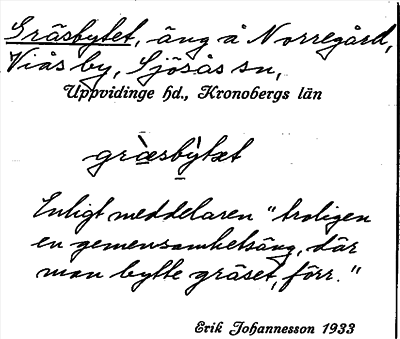 Gräsbytet, äng å Norregård,
Viås by, Sjösås sn,
Uppvidinge hd., Kronobergs län
græ̀sbỳtæt
Enligt meddelaren "troligen
en gemensamhetsäng, där
man bytte gräset, förr."
Erik Johannesson 1933